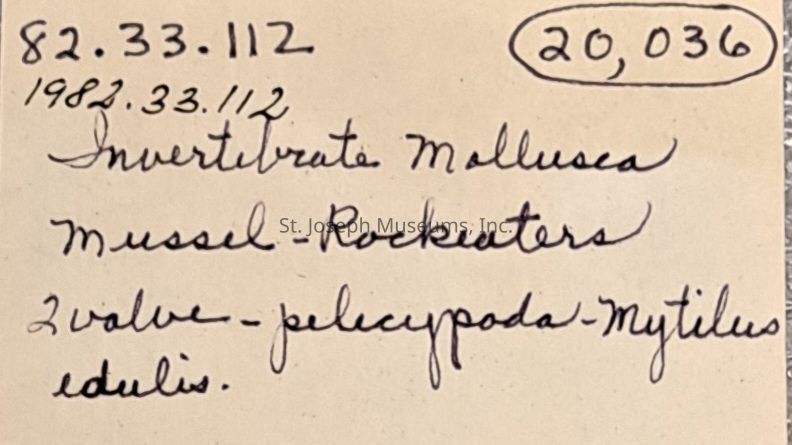 82.33.112
20,036
1982.33.112
Invertebrate Mollusca
Mussel - Rockeaters
St. Joseph Museums, Inc.
2 valve - pelecypoda - Mytilus
edulis.